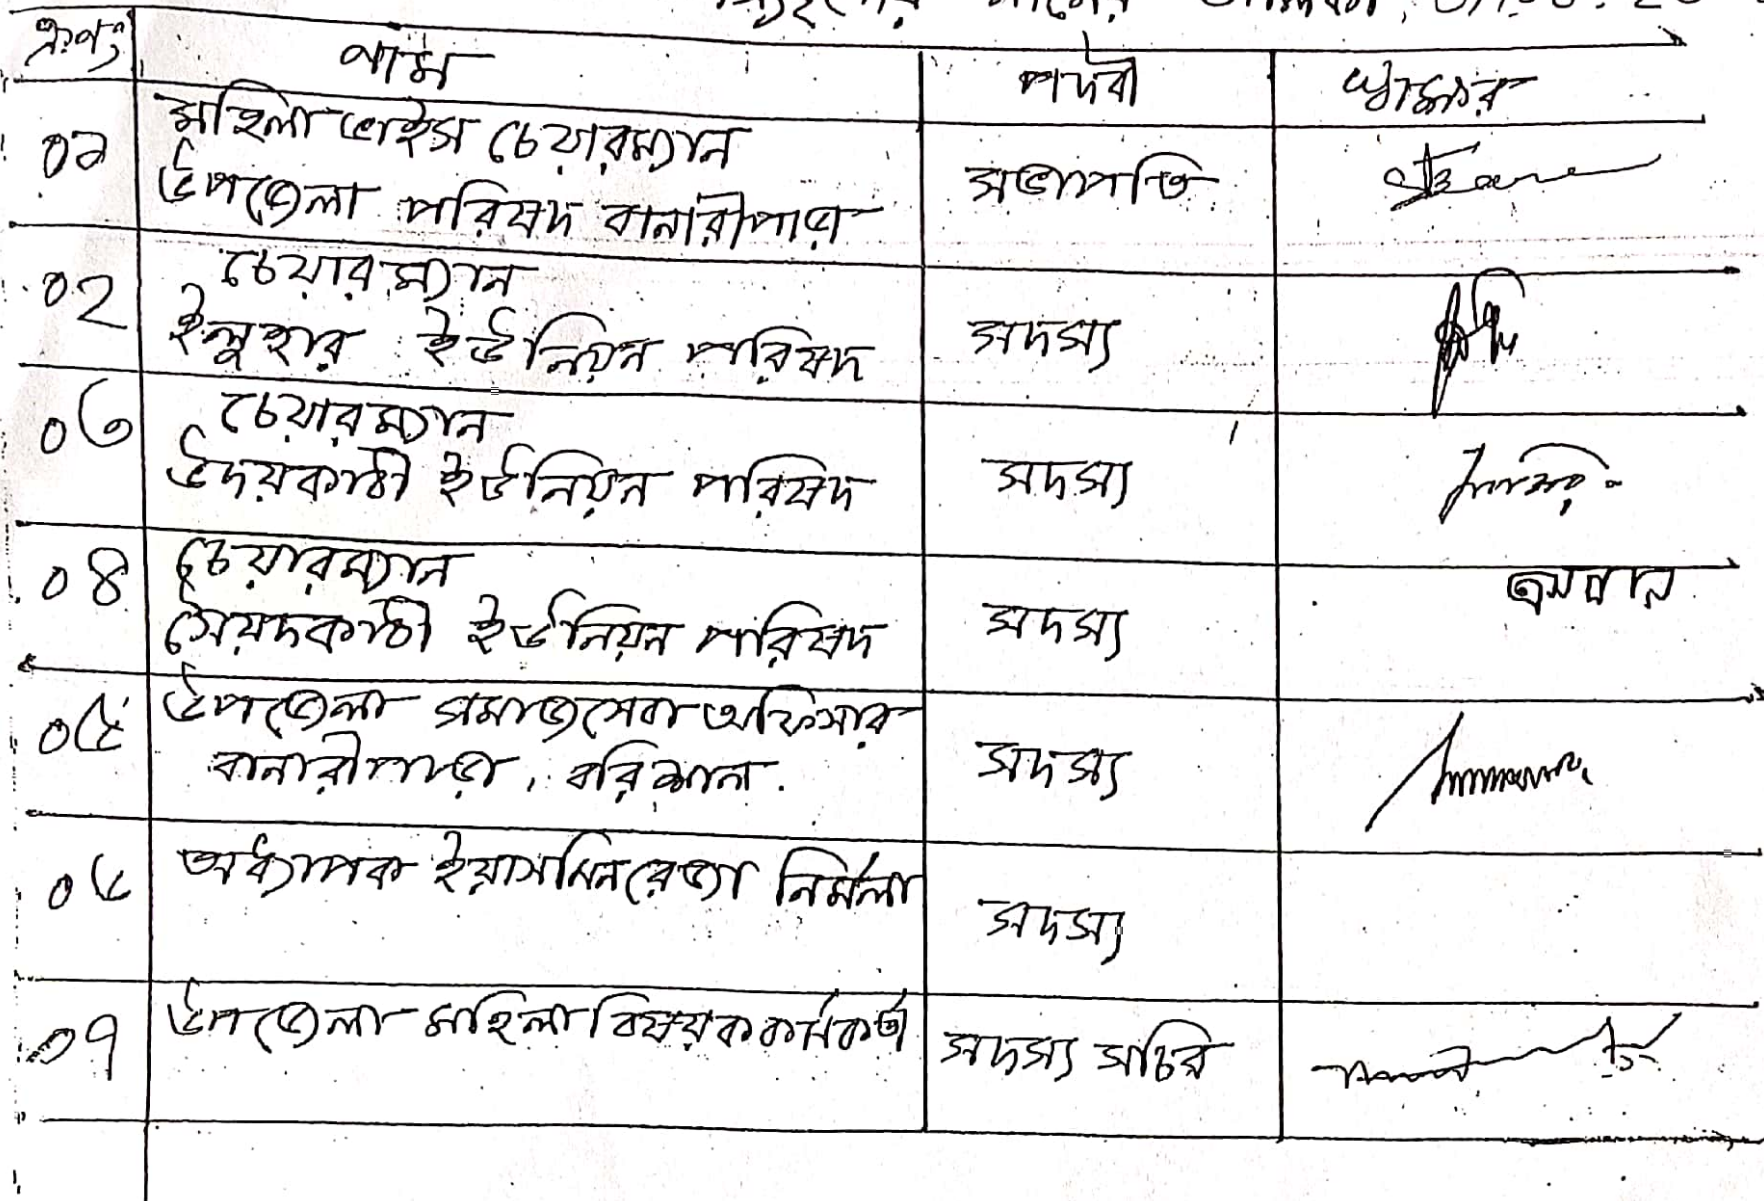 নামের তালিকা,
ক্রঃনং নাম পদবী স্বাক্ষর
০১ মহিলা ভাইস চেয়ারম্যান
উপজেলা পরিষদ বানারীপাড়া সভাপতি
০২ চেয়ারম্যান
ইলুহার ইউনিয়ন পরিষদ সদস্য
০৩ চেয়ারম্যান
উদয়কাঠী ইউনিয়ন পরিষদ সদস্য
০৪ চেয়ারম্যান
সৈয়দকাঠী ইউনিয়ন পরিষদ সদস্য
০৫ উপজেলা সমাজসেবা অফিসার
বানারীপাড়া, বরিশাল. সদস্য
০৬ অধ্যাপক ইয়াসমিন রেজা নির্মলা
সদস্য
০৭ উপজেলা মহিলা বিষয়ক কর্মকর্তা সদস্য সচিব